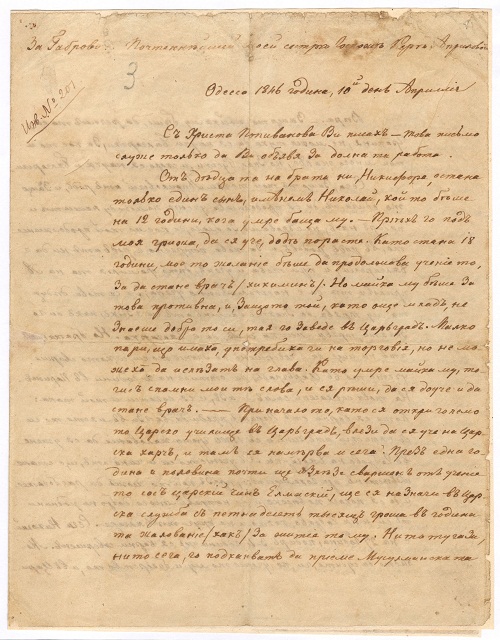 За Габрово. Почтеннѣйшей моей сестрѣ Госпожѣ
3
Одесса 1846 година, 10й день Априлїя
Инв. № 201.
Съ Христа П. Иванова Ви писахъ – това писмо
служи толко да Ви обявя за долня та работа.
Отъ дѣцата на брата ни, Никифора, остана
толко единъ сынъ, именемъ Николай, кой то бѣше
на 12 години, кога умре баща му. – Прїехъ го подъ
моя грижа, да ся учи, додѣ порасте. Като стана 18
години, мое то желанїе бѣше, да продолжава ученїе то,
за да стане врачъ /хикиминъ/. Но майка му бѣше за
това противна, и, защото той, като още младъ, не
знаеше добро то си, тя го заведе въ Царьградъ. Малко
пари, що имаха, употребиха ги на торговїя, но не мо
жеха да излязатъ на глава. Като умре майка му, то
гисъ спомни мои тѣ слова, и ся рѣши, да ся доучи и да
стане врачъ. — При начало то, като ся откри големо
то Царско училище въ Царьградъ, влязе да ся учи на Цар
ска харчъ, и тамъ ся намѣрва и сега. Презъ една го
дина и половина почти ще излезе свършенъ отъ ученїе
то съсъ царскїй чинъ, и ще ся назначи въ Цар
ска служба съ петнадесетъ тысящъ гроша въ година
та жалованїе /хакъ/ за житїе то му. Ни то тугази,
ни то сега, го подканватъ да прїеме Мусулманска та